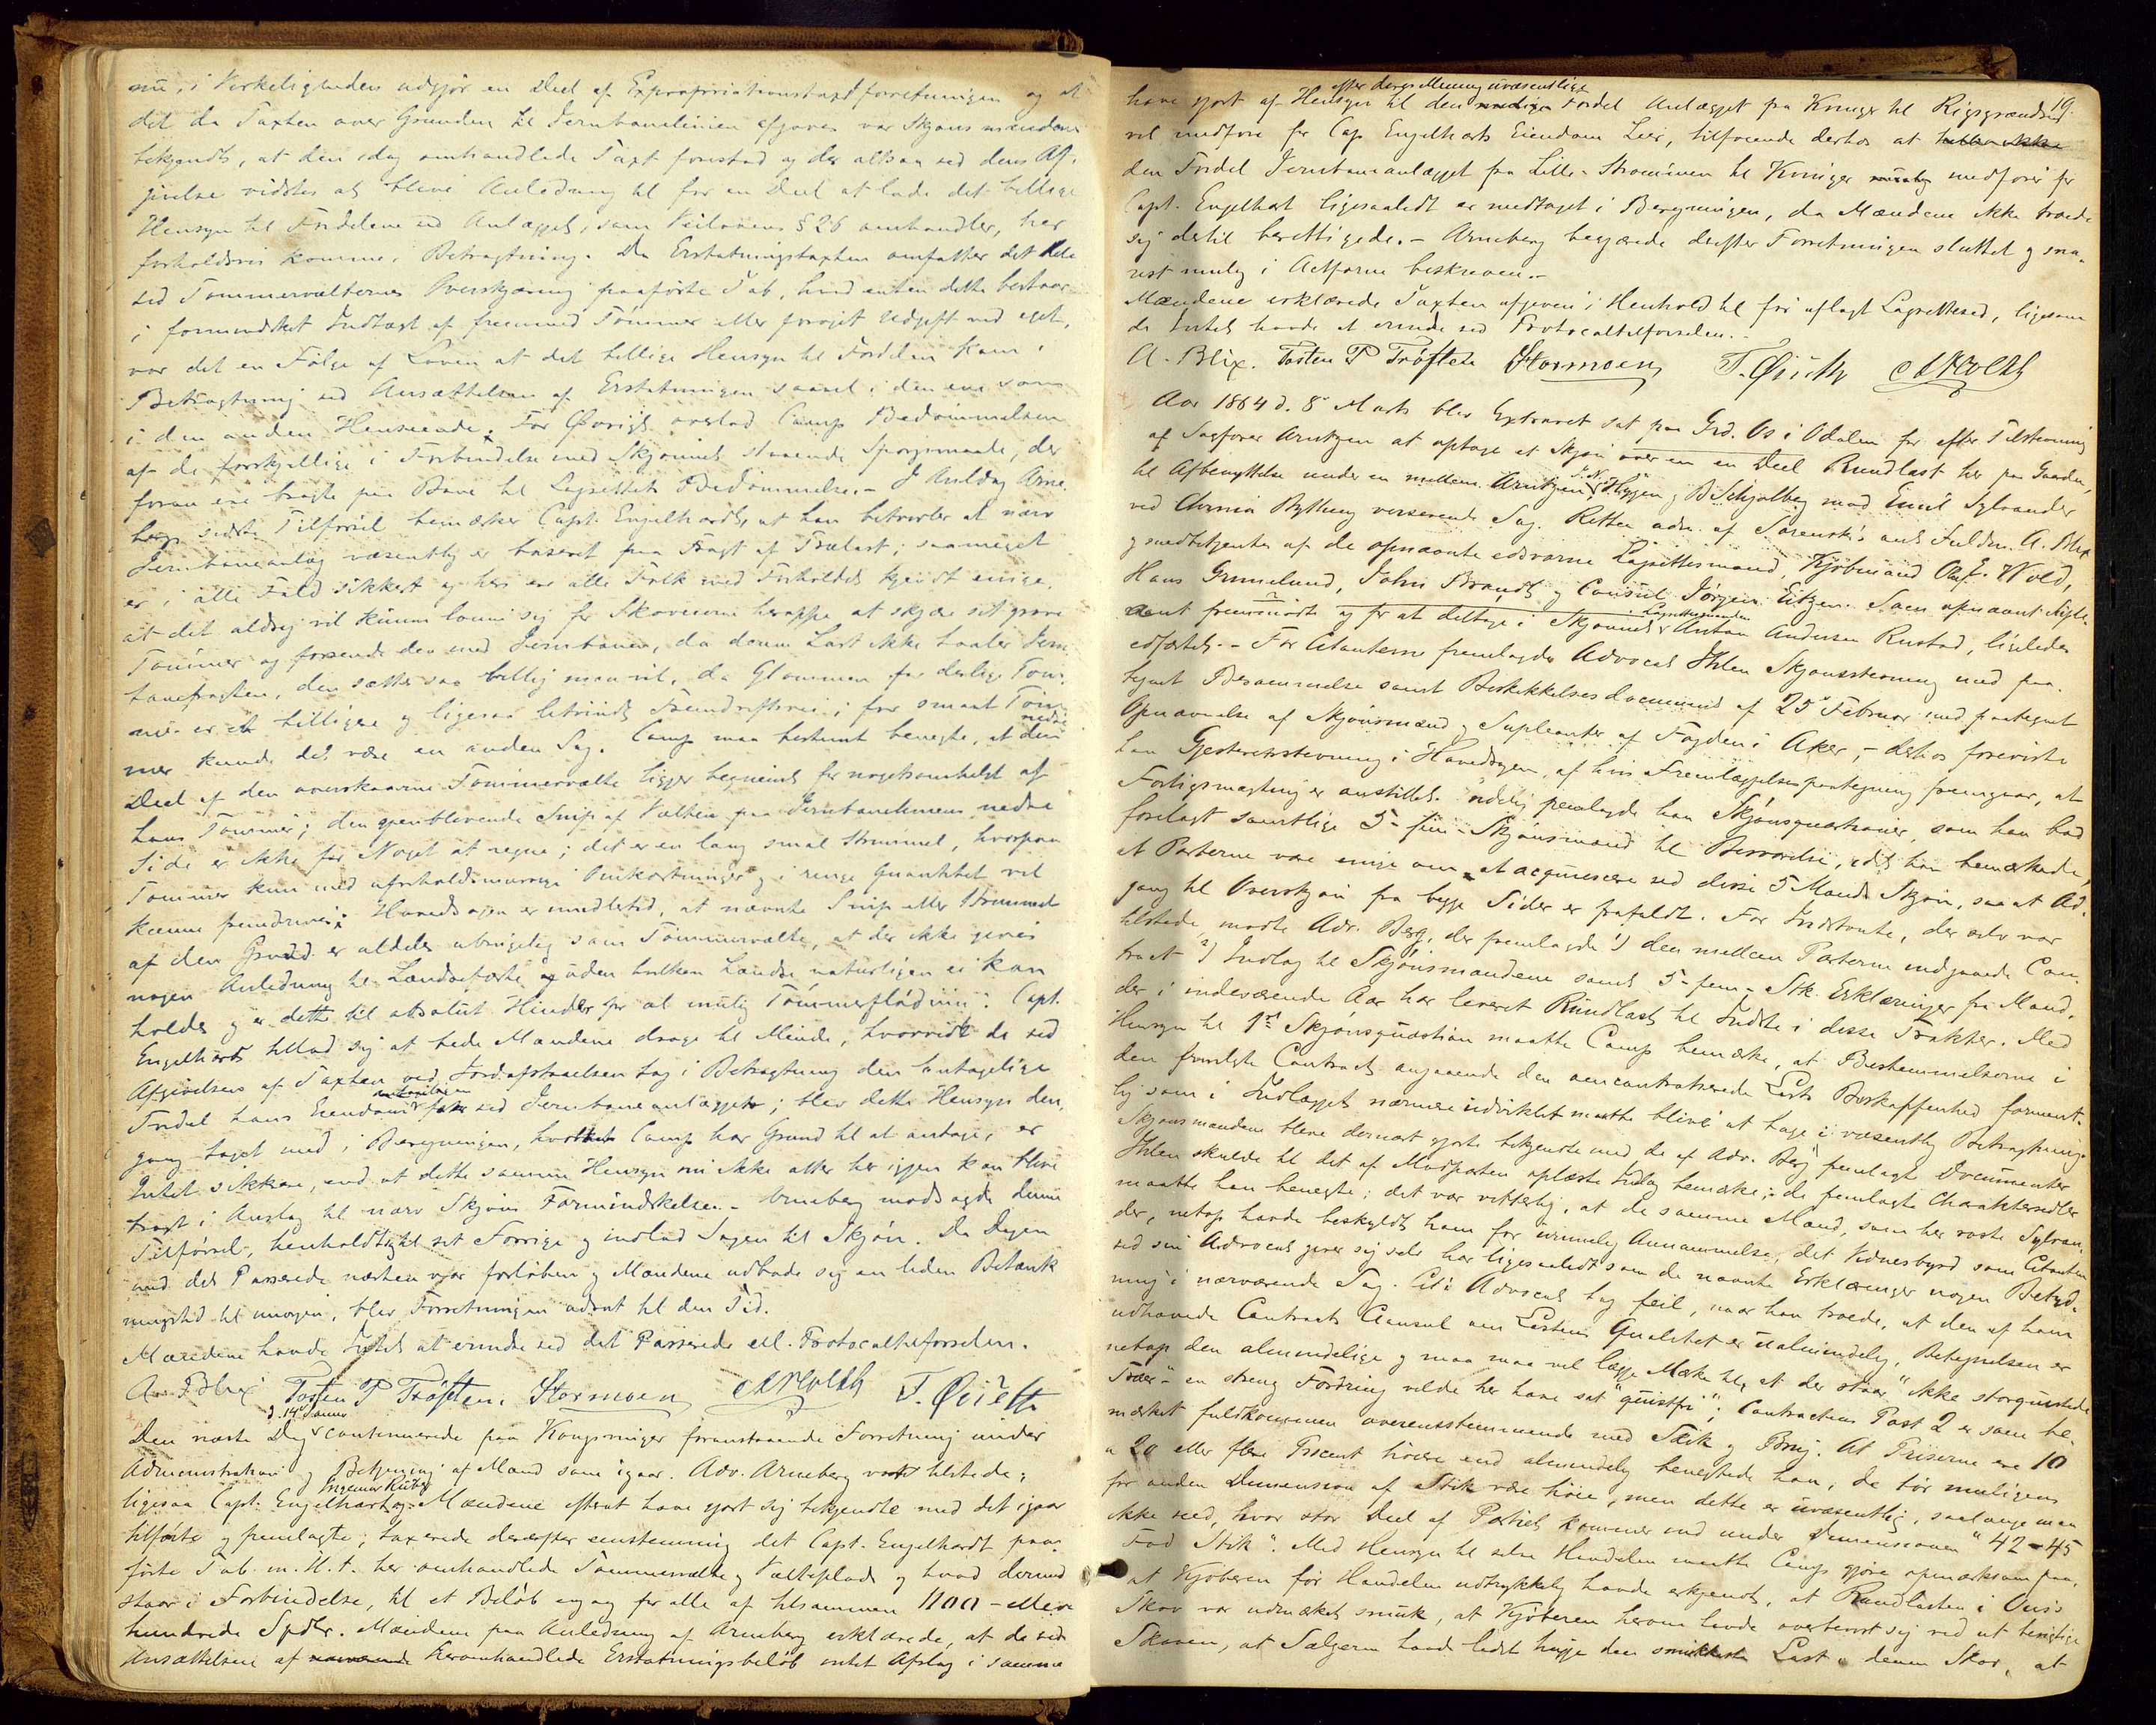 nu, i Virkeligheden udgjør en Deel af Expropriationstaxtforretningen og at
det da Taxten over Grunden til Jernbanelinien afgaves var Skjønsmændene
bekjendt, at den idag omhandlede Taxt forestod og der altsaa ved dens Af-
givelse vidstes at blive Anledning til for en Deel at lade det billige
Hensyn til Fordelene ved Anlægget, som Veilovens § 26 omhandler, her
forholdsvis komme i Betragtning. Da Erstatningstaxten omfatter det Hele
ved Tømmervælternes Overskjæring paaførte Tab, hvad enten dette bestaar
i formindsket Indtægt af fremmed Tømmer eller forøget Udgift ved eget,
var det en Følge af Loven at det billige Hensyn til Fordelen kom i
Betragtning ved Ansættelsen af Erstatningen saavel i den ene som
i den anden Henseende. For Øvrigt overlod Comp. Bedømmelsen
af de forskjellige i Forbindelse med Skjønnet staaende Spørgsmaale, der
foran ere bragte paa Bane til Lagrettets Bedømmelse. – I Anledn. Arne-
bergs sidste Tilførsel bemærker Capt. Engelhardt, at han betvivler at nærv.
Jernbaneanlæg væsentlig er baseret paa Fragt af Trælast; saameget
er i alle Fald sikkert og heri ere alle Folk med Forholdet kjendt enige,
at det aldrig vil kunne lønne sig for Skoveierne heroppe at skjære sit grove
Tømmer og forsende den med Jernbanen, da denne Last ikke taaler Jern-
banefragten, den sættes saa billig man vil, da Glommen for deslige Tøm-
mer er et billigere og ligesaa betrinet Fremdriftsvei; for smaat Tøm-
mer kunde det være en anden Sag. Comp. maa bestemt benegte, at den nedre
Deel af den overskaarne Tømmervælte ligger beqvemt for nogetsomhelst af
hans Tømmer; den gjenblivende Snip af Vælten paa Jernbaneliniens nedre
Side er ikke for Noget at regne; det er en lang smal Strimmel, hvorpaa
Tømmer kun med uforholdsmæssige Omkostninger og i ringe Quantitet vil
kunne fremdrives; Hovedsagen er imidlertid, at nævnte Snip eller Strimmel
af den Grund er aldeles ubrugelig som Tømmervælte, at der ikke gives
nogen Anledning til Lændsefæste og uden hvilken Lændse naturligen ei kan
holdes og er dette til absolut Hinder for al mulig Tømmerflødning. Capt.
Engelhardt tillod sig at bede Mændene drage til Minde, hvorvidt de ved
Afgivelsen af Taxten ved Jordafstaaelsen tog i Betragtning den antagelige
Fordel hans Eiendom fik ved Jernbaneanlægget; blev dette Hensyn den-
gang taget med i Beregningen, hvilket Comp. har Grund til at antage, er
Intet sikkrere, end at dette samme Hensyn nu ikke atter her igjen kan blive
bragt i Anslag til nærv. Skjøns Formindskelse. – Arneberg modsagde denne
Tilførsel, henholdt sig til sit Forrige og indlod Sagen til Skjøn. Da Dagen
med det Passerede næsten var forløben og Mændene udbade sig en liden Betænk-
ningstid til imorgen, blev Forretningen udsat til den Tid.
Mændene havde Intet at erindre ved det Passerede ell. Protocoltilførselen.
A. Blix Torsten P Trøften. Stormoen A Wold T. Qvieth
d. 14 Januar
Den næste Dag continuerede paa Kongsvinger foranstaaende Forretning under
Administration og Betjening af Mænd som igaar. Adv. Arneberg var tilstede;
Ingeniør Ruby
ligesaa Capt. Engelhart og Mændene efterat have gjort sig bekjendte med det igaar
tilførte og fremlagte; taxerede derefter eenstemmig det Capt. Engelhardt paa-
førte Tab m. H. t. her omhandlede Tømmervælte og Vælteplads og hvad dermed
staar i Forbindelse, til et Beløb engang for alle af tilsammen 1100 – elleve
hundrede Spdlr. Mændene paa Anledning af Arneberg erklærede, at de ved
Ansættelsen af heromhandlede Erstatningsbeløb intet Afslag i samme
19.
efter deres Mening uvæsentlige
have gjort af Hensyn til den Fordel Anlægget fra Kvinger til Rigsgrændsen
vil medføre for Cap Engelharts Eiendom Leer, tilføiende derhos at
den Fordel Jernbaneanlægget fra Lille-Strømmen til Kvinger medfører for
Capt. Engelhart ligesaalidt er medtaget i Beregningen, da Mændene ikke troede
sig dertil berettigede. – Arneberg begjærede derefter Forretningen sluttet og sna-
rest mulig i Actform beskreven. –
Mændene erklærede Taxten afgiven i Henhold til før aflagt Lagrettesed, ligesom
de Intet havde at erindre ved Protocoltilførselen. –
A. Blix. Torsten P Trøften Stormoen T. Qvieth A Wold
Aar 1864 d. 8 Marts blev Extraret sat paa Grd. Os i Odalen for efter Tilstevning
af Sagfører Arntzen at optage et Skjøn over en Deel Rundlast her paa Gaarden,
til Afbenyttelse under en mellem Arntzen, J. N. Heyjen og B. Schjølberg mod Emil Sylvander
ved Chrnia Bything verserende Sag. Retten adm. af Sorenskr's aut. Fuldm. A. Blix
og medbetjentes af de opnævnte edsvorne Lagrettesmænd, Kjøbmænd Olaf Wold,
Hans Grunelund, John Brandt og Consul Jørgen Eitzen. Som opnævnt Suple-
Lagrettesmanden
ant fremmødte og for at deltage i Skjønnet Anton Andersen Rustad, ligeledes
edfæstet. – For Citanterne fremlagdes Advocat Ihlen Skjønsstevning med paa-
tegnet Berammelse samt Beskikkelsesdocument af 25 Februar med paategnet
Opnævnelse af Skjønsmænd og Supleanter af Fogden i Aker; – derhos foreviste
han Gjesteretsstevning i Hovedsagen, af hvis Fremlæggelsespaategning fremgaar, at
Forligsmægling er anstillet. Endelig fremlagde han Skjønsquæstioner, som han bad
forelagt samtlige 5 – fem – Skjønsmænd til Besvarelse, idet han bemærkede,
at Parterne vare enige om at acquiescere ved disse 5 Mænds Skjøn, saa at Ad-
gang til Overskjøn fra begge Sider er frafaldt. For Indstevnte, der selv var
tilstede mødte Adv. Berg, der fremlagde 1) den mellem Parterne indgaaede Con-
tract 2) Indlæg til Skjønsmændene samt 5 – fem – Stk. Erklæringer fra Mænd,
der i indeværende Aar har leveret Rundlast til Indste i disse Trakter. Med
Hensyn til 1ste Skjønsquæstion maatte Comp. bemærke, at Bestemmelserne i
den fremlagte Contract angaaende den omcontraherede Lasts Beskaffenhed forment-
lig som i Indlægget nærmere udviklet maatte blive at tage i væsentlig Betragtning.
Skjønsmændene bleve dernæst gjorte bekjendte med de af Adv. Berg fremlagte Documenter
Ihlen skulde til det af Modparten oplæste Indlæg bemærke; de fremlagte Charaktersedler
maatte han benegte; det var vitterlig, at de samme Mænd, som her roste Sylvan-
der, netop havde beskyldt ham for urimelig Annammelse, det Vidnesbyrd som Citanten
ved sin Advocat giver sig selv har ligesaalidt som de nævnte Erklæringer nogen Betyd-
ning i nærværende Sag. Cit's Advocat tog feil, naar han troede, at den af ham
udhævede Contracts Clausul om Lastens Qualitet er ualmindelig. Betegnelsen er
netop den almindelige og maa maa vel lægge Mærke til, at der staar "ikke storqvistede
Træer" – en streng Fordring vilde her have sat "qvistfri"; Contractens Post 2 er som be-
mærket fuldkommen overensstemmende med Skik og Brug. At Priserne ere 10
a 20 eller flere Procent høiere end almindelig benegtede han, de tør muligens
for anden Dimension af Stik være høie, men dette er uvæsentlig, saalænge man
ikke veed, hvor stor Deel af Partiet kommer ind under Dimensionen "42 – 45
Fod Stik". Med Hensyn til selve Handelen maatte Comp. gjøre opmærksom paa,
at Kjøberen før Handelen udtrykkelig havde erkjendt, at Rundlasten i Ouis
Skov var udmærket smuk, at Kjøberen herom havde overbevist sig ved at besigtige
Skoven, at Sælgeren havde ladet hugge den smukkeste Last i denne Skov, at